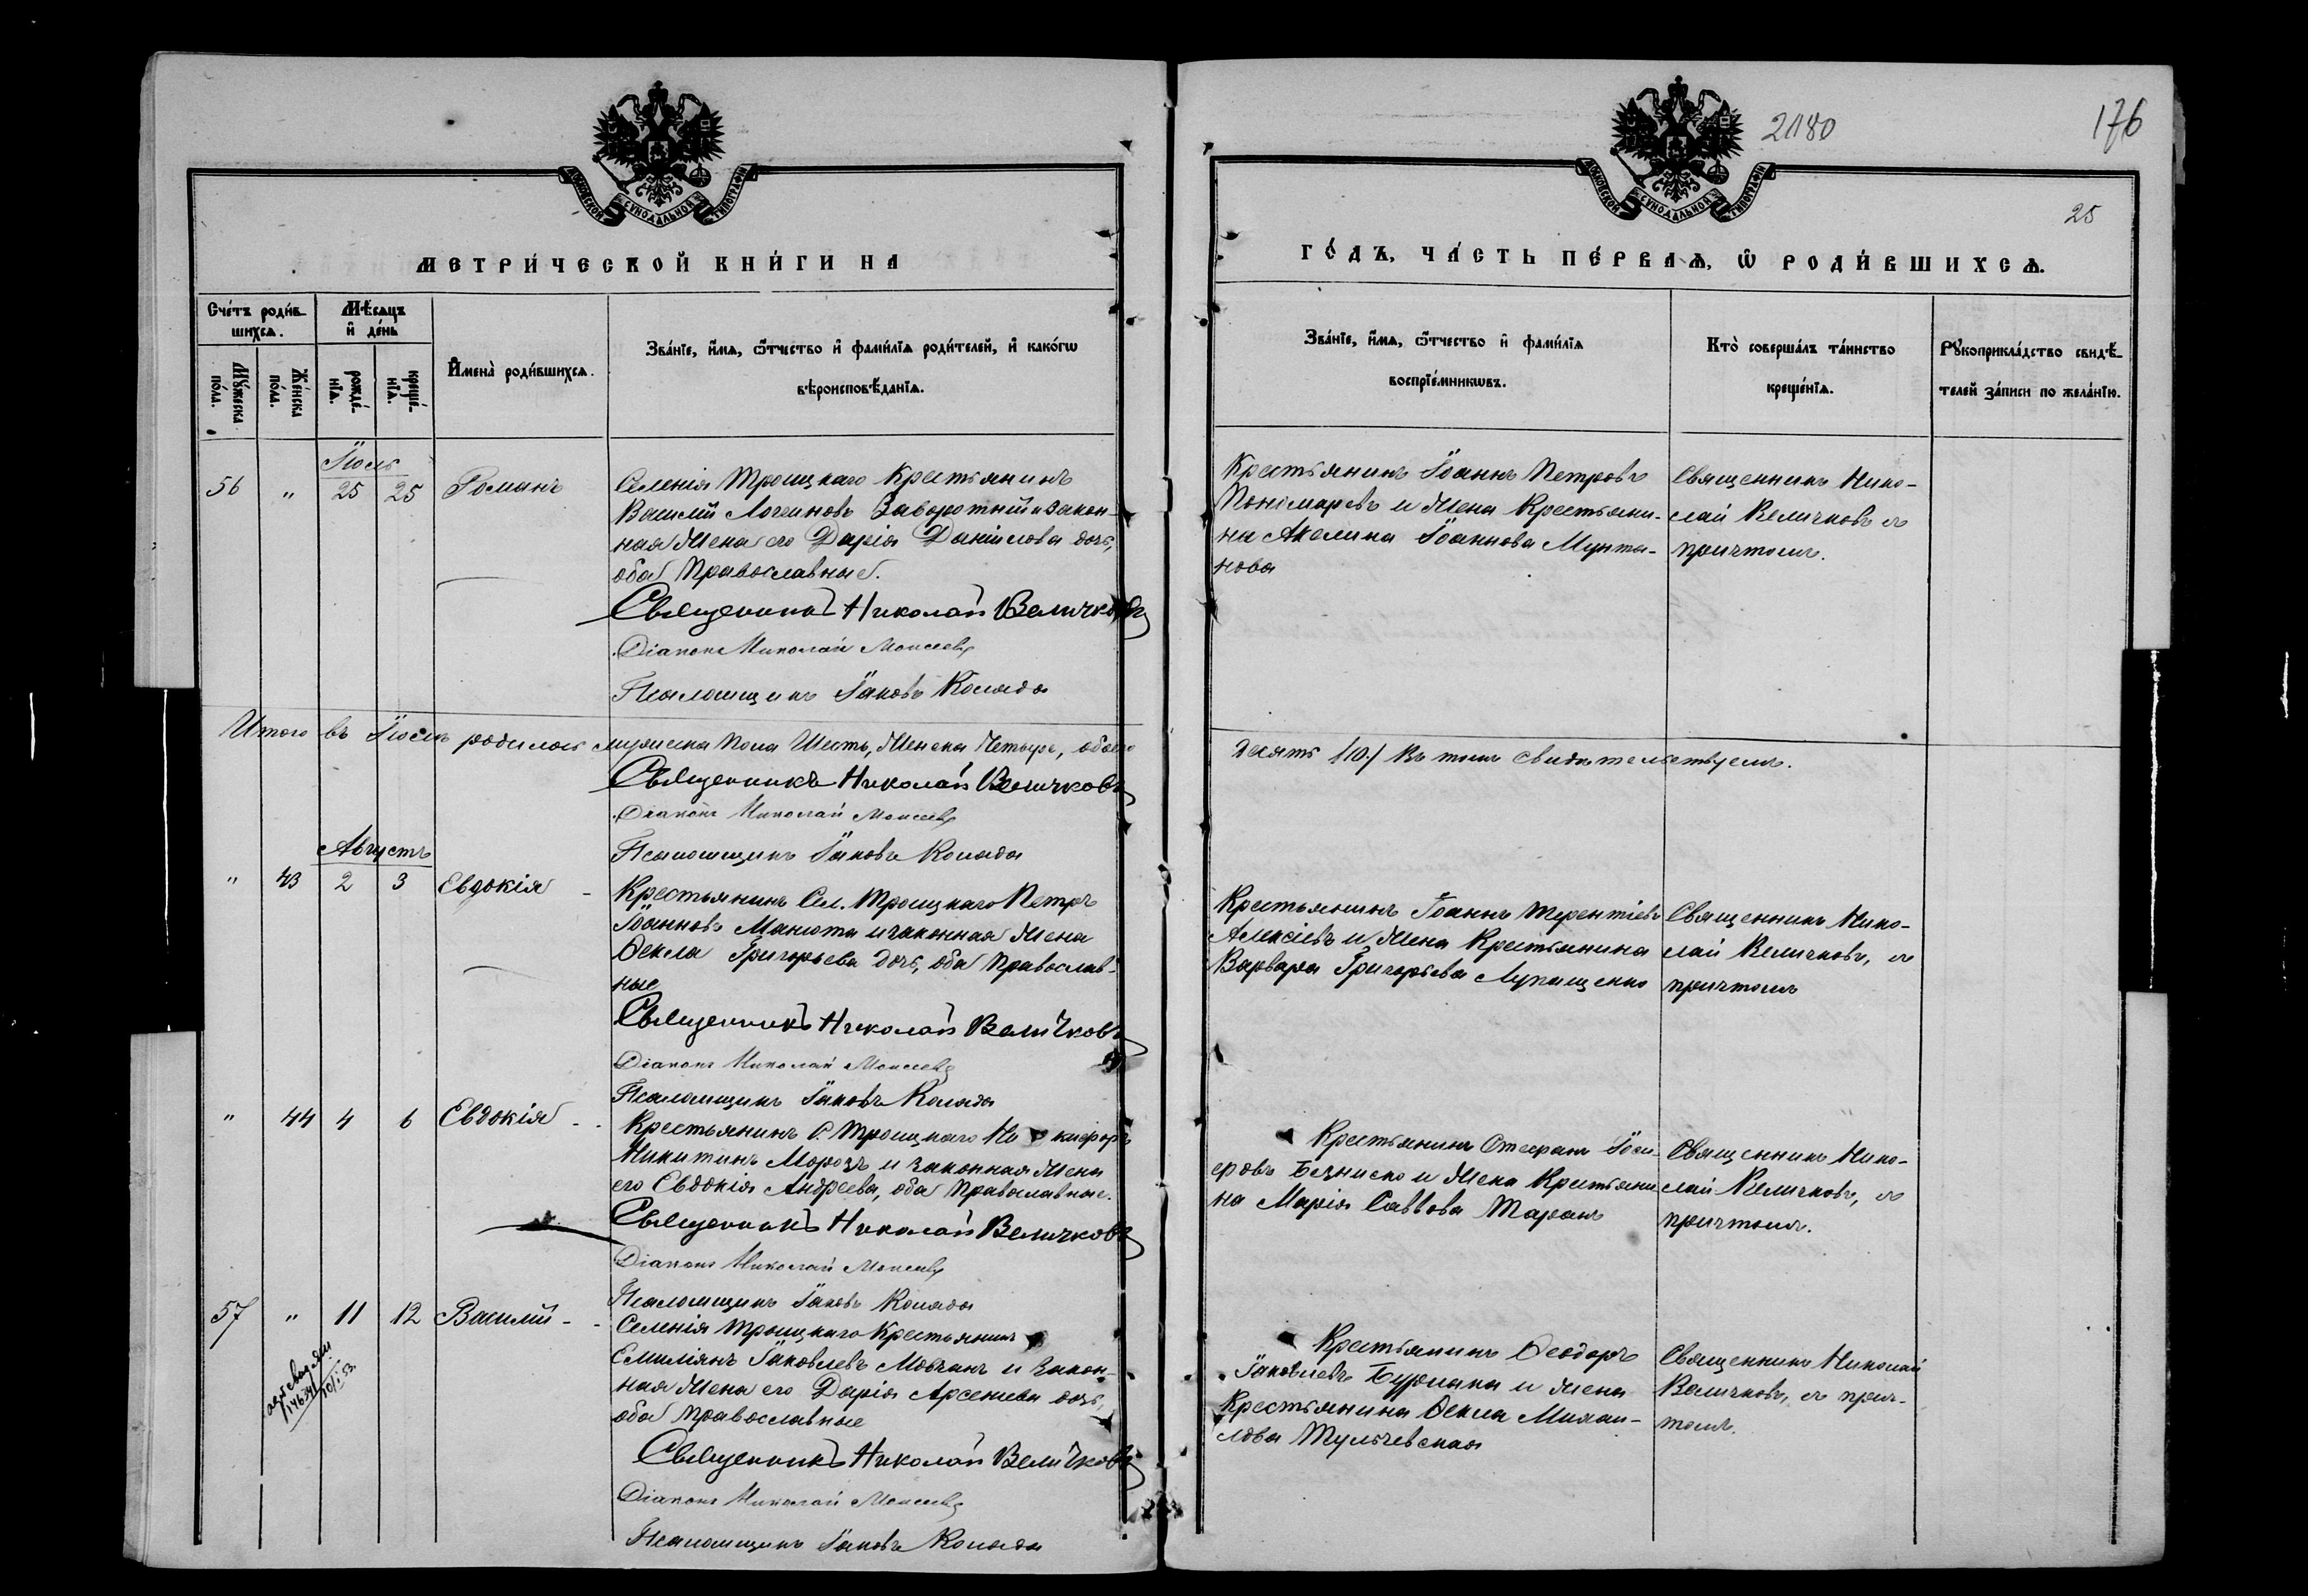 2180
176
25
МОСКОВСКОЙ СУНОДАЛЬНОЙ ТИПОГРАФІИ
МОСКОВСКОЙ СУНОДАЛЬНОЙ ТИПОГРАФІИ
МЕТРИ́ЧЕСКОЙ КНИ́ГИ НА
ГО́ДЪ, ЧА́СТЬ ПЕ́РВАѦ, Ѿ РОДИ́ВШИХСѦ.
Сче́тъ роди́в-
шихсѧ.
Мѣсѧцъ
и҆ де́нь
Мꙋ́жеска
по́ла.
Же́нска
по́ла.
рожде́-
нїѧ.
креще́-
нїѧ.
И҆мена̀ роди́вшихсѧ.
Зва́нїе, и҆́мѧ, ѻ҆́тчество и҆ фами́лїѧ роди́телей, и҆ како́гѡ
вѣроисповѣ́данїѧ.
Зва́нїе, и҆́мѧ, ѻ҆́тчество и҆ фами́лїѧ
воспрїе́мникѡвъ.
Кто̀ соверша́лъ та́инство
креще́нїѧ.
Рꙋкоприкла́дство свидѣ́-
телей за́писи по жела́нїю.
Іюль
56 " 25 25 Романъ
Селенія Троицкаго Крестьянинъ
Василій Логиновъ Заворотній и закон-
ная жена его Дарія Даніилова дочь,
оба Православные.
Священникъ Николай Величковъ
Діаконъ Николай Моисеевъ
Псаломщикъ Іаковъ Коляда
Крестьянинъ Іоаннъ Петровъ
Пономаревъ и жена Крестьяни-
на Акелина Іоаннова Мунта-
нова
Священникъ Нико-
лай Величковъ съ
причтомъ.
Итого въ Іюлѣ родилось мужеска пола Шесть, Женска Четыре, обоего
Десять /10./ Въ томъ свидѣтельствуемъ.
Священникъ Николай Величковъ
Діаконъ Николай Моисеевъ
Псаломщикъ Іаковъ Коляда
Августъ
" 43 2 3 Евдокія
Крестьянинъ Сел. Троицкаго Петръ
Іоанновъ Манюта и законная жена
Ѳекла Григорьева дочь, оба Православ-
ные
Священникъ Николай Величковъ
Діаконъ Николай Моисеевъ
Псаломщикъ Іаковъ Коляда
Крестьянинъ Іоаннъ Терентіевъ
Алексіевъ и жена Крестьянина
Варвара Григорьева Лукащенко
Священникъ Нико-
лай Величковъ, съ
причтомъ
" 44 4 6 Евдокія
Крестьянинъ С. Троицкаго Никифоръ
Никитинъ Морозъ и законная жена
его Евдокія Андреева, оба Православные.
Священникъ Николай Величковъ
Діаконъ Николай Моисеевъ
Псаломщикъ Іаковъ Коляда
Крестьянинъ Стефанъ Іоси-
фовъ и жена Крестьяни-
на Марія Саввова Таранъ
Священникъ Нико-
лай Величковъ, съ
причтомъ.
57 " 11 12 Василій
Селенія Троицкаго Крестьянинъ
Емиліянъ Іаковлевъ Мовчанъ и закон-
ная жена его Дарія Арсеніева дочь,
оба Православные
Священникъ Николай Величковъ
Діаконъ Николай Моисеевъ
Псаломщикъ Іаковъ Коляда
Крестьянинъ Ѳеодоръ
Іаковлевъ Бурлака и жена
Крестьянина Ѳекла Михаи-
лова Тульчевская
Священникъ Николай
Величковъ, съ прич-
томъ.